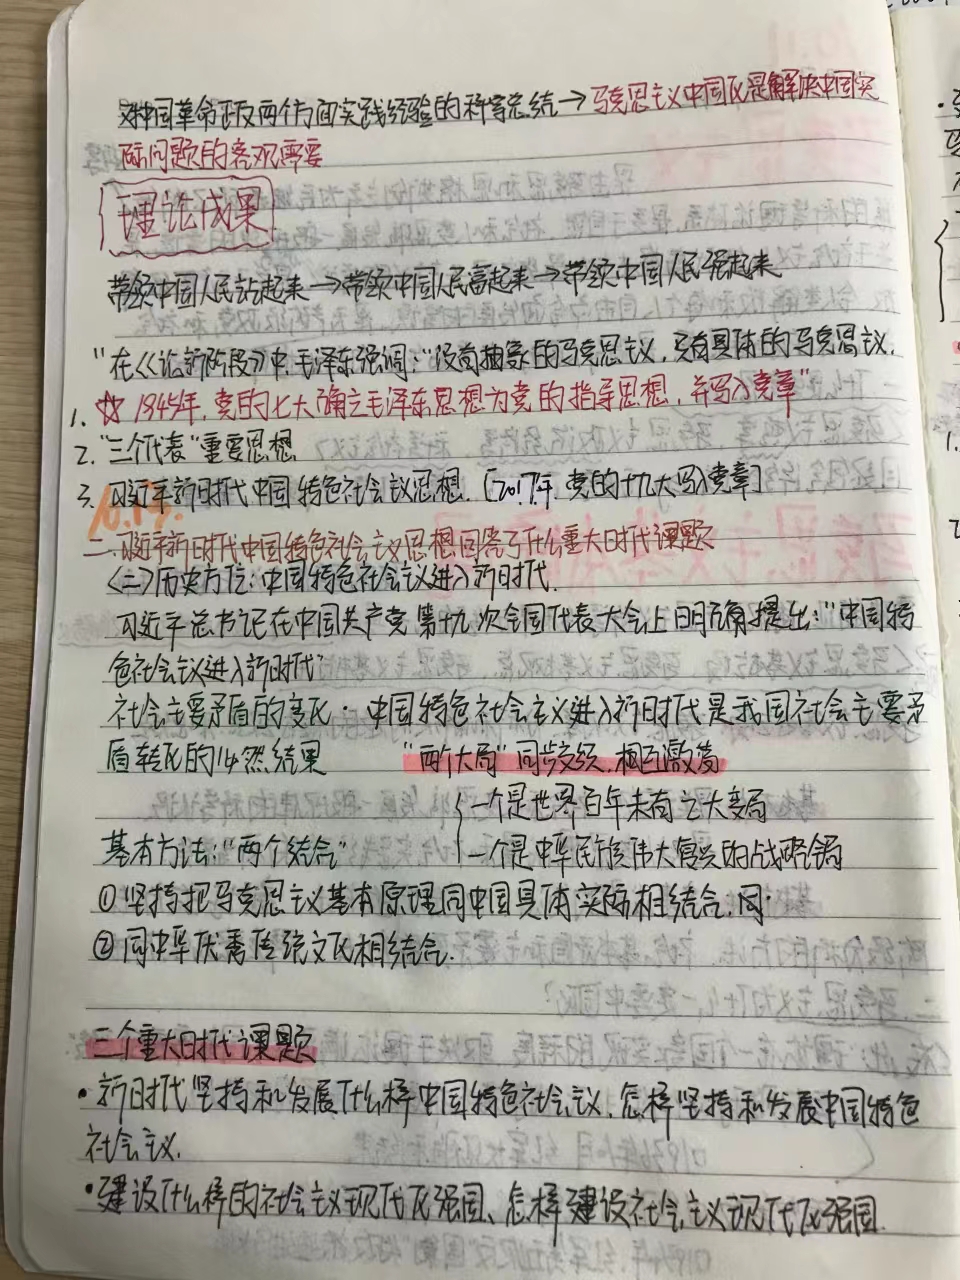 对中国革命正反两个方面实践经验的科学总结→马克思主义中国化是解决中国实
际问题的客观需要
理论成果
带领中国人民站起来→带领中国人民富起来→带领中国人民强起来
"在《论新阶段》中,毛泽东强调:"没有抽象的马克思主义,只有具体的马克思主义.
1. ☆ 1945年,党的七大确立毛泽东思想为党的指导思想,并写入党章"
2. "三个代表"重要思想
3. 习近平新时代中国特色社会主义思想.[2017年,党的十九大写入党章]
10.17.
一.习近平新时代中国特色社会主义思想回答了什么重大时代课题
<二>历史方位:中国特色社会主义进入新时代.
习近平总书记在中国共产党第十九次全国代表大会上明确提出:"中国特
色社会主义进入新时代"
社会主要矛盾的变化·中国特色社会主义进入新时代是我国社会主要矛
盾转化的必然结果 "两个大局"同步交织,相互激荡
一个是世界百年未有之大变局
基本方法:"两个结合" 一个是中华民族伟大复兴的战略全局
①坚持把马克思主义基本原理同中国具体实际相结合,同·
②同中华优秀传统文化相结合.
三个重大时代课题
·新时代坚持和发展什么样中国特色社会主义,怎样坚持和发展中国特色
社会主义.
·建设什么样的社会主义现代化强国、怎样建设社会主义现代化强国.